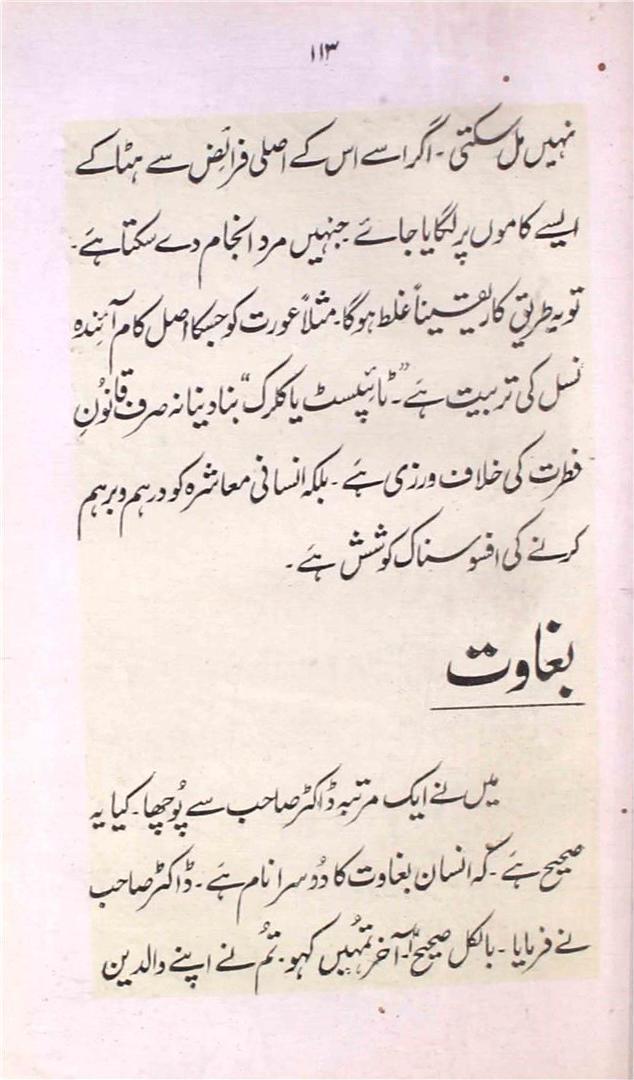 ۱۱۳
نہیں مل سکتی ۔ اگر اسے اس کے اصلی فرائض سے ہٹا کے
ایسے کاموں پر لگایا جائے ۔ جنہیں مرد انجام دے سکتا ہے ۔
تو یہ طریق کار یقیناً غلط ہوگا ۔ مثلاً عورت کو جسکا اصل کام آئندہ
نسل کی تربیت ہے ۔ ”ٹائپسٹ یا کلرک“ بنا دینا نہ صرف قانونِ
فطرت کی خلاف ورزی ہے ۔ بلکہ انسانی معاشرہ کو درہم و برہم
کرنے کی افسوسناک کوشش ہے ۔
بغاوت
میں نے ایک مرتبہ ڈاکٹر صاحب سے پُوچھا ۔ کیا یہ
صحیح ہے ۔ کہ انسان بغاوت کا دُوسرا نام ہے ۔ ڈاکٹر صاحب
نے فرمایا ۔ بالکل صحیح“! ۔ آخر تمہُیں کہو ۔ تُم نے اپنے والدین